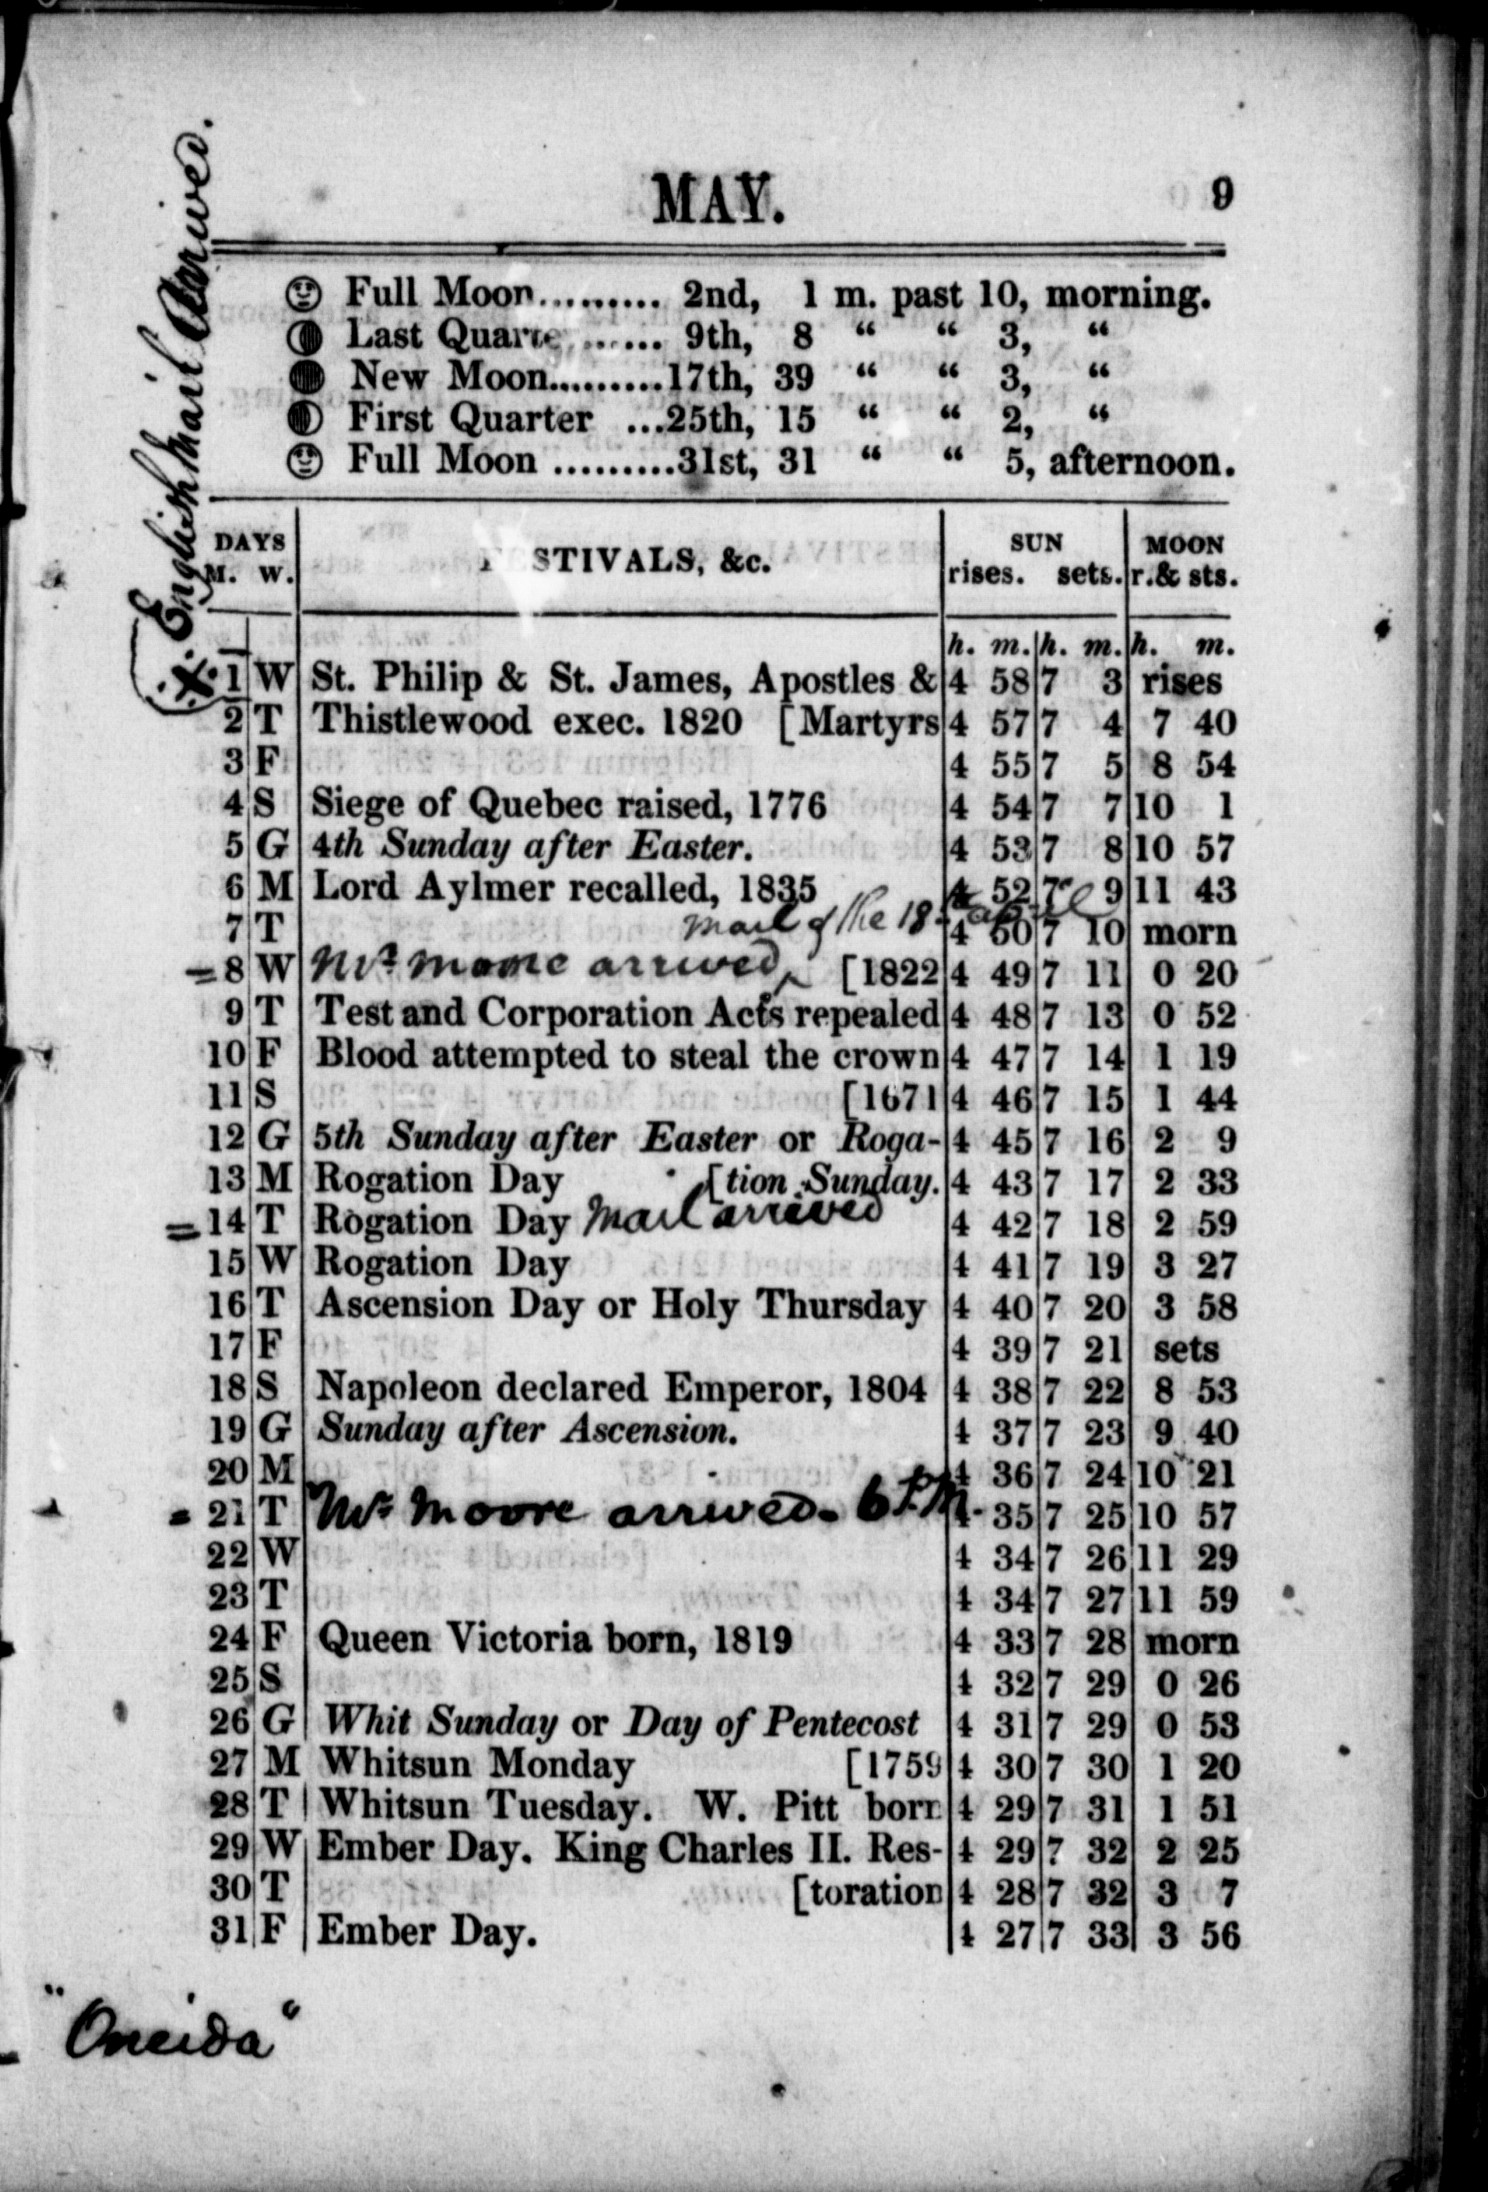 English Mail Arrived.
MAY. 9
Full Moon.......... 2nd, 1 m. past 10, morning.
Last Quarte....... 9th, 8 “ “ 3, “
New Moon..........17th, 39 “ “ 3, “
First Quarter ...25th, 15 “ “ 2, “
Full Moon ..........31st, 31 “ “ 5, afternoon.
DAYS STIVALS, &c. SUN MOON
M. W. rises. sets. r.& sts.
h. m. h. m. h. m.
1 W St. Philip & St. James, Apostles & 4 58 7 3 rises
2 T Thistlewood exec. 1820 [Martyrs 4 57 7 4 7 40
3 F 4 55 7 5 8 54
4 S Siege of Quebec raised, 1776 4 54 7 7 10 1
5 G 4th Sunday after Easter. 4 53 7 8 10 57
6 M Lord Aylmer recalled, 1835 4 52 7 9 11 43
mail of the 18th april
7 T 4 50 7 10 morn
= 8 W arrived [1822 4 49 7 11 0 20
9 T Test and Corporation Acts repealed 4 48 7 13 0 52
10 F Blood attempted to steal the crown 4 47 7 14 1 19
11 S [1671 4 46 7 15 1 44
12 G 5th Sunday after Easter or Roga- 4 45 7 16 2 9
13 M Rogation Day [tion Sunday. 4 43 7 17 2 33
= 14 T Rogation Day Mail arrived 4 42 7 18 2 59
15 W Rogation Day 4 41 7 19 3 27
16 T Ascension Day or Holy Thursday 4 40 7 20 3 58
17 F 4 39 7 21 sets
18 S Napoleon declared Emperor, 1804 4 38 7 22 8 53
19 G Sunday after Ascension. 4 37 7 23 9 40
20 M 4 36 7 24 10 21
= 21 T Mr Moore arrived. 6 P.M. 4 35 7 25 10 57
22 W 4 34 7 26 11 29
23 T 4 34 7 27 11 59
24 F Queen Victoria born, 1819 4 33 7 28 morn
25 S 4 32 7 29 0 26
26 G Whit Sunday or Day of Pentecost 4 31 7 29 0 53
27 M Whitsun Monday [1759 4 30 7 30 1 20
28 T Whitsun Tuesday. W. Pitt born 4 29 7 31 1 51
29 W Ember Day. King Charles II. Res- 4 29 7 32 2 25
30 T [toration 4 28 7 32 3 7
31 F Ember Day. 4 27 7 33 3 56
"Oneida"